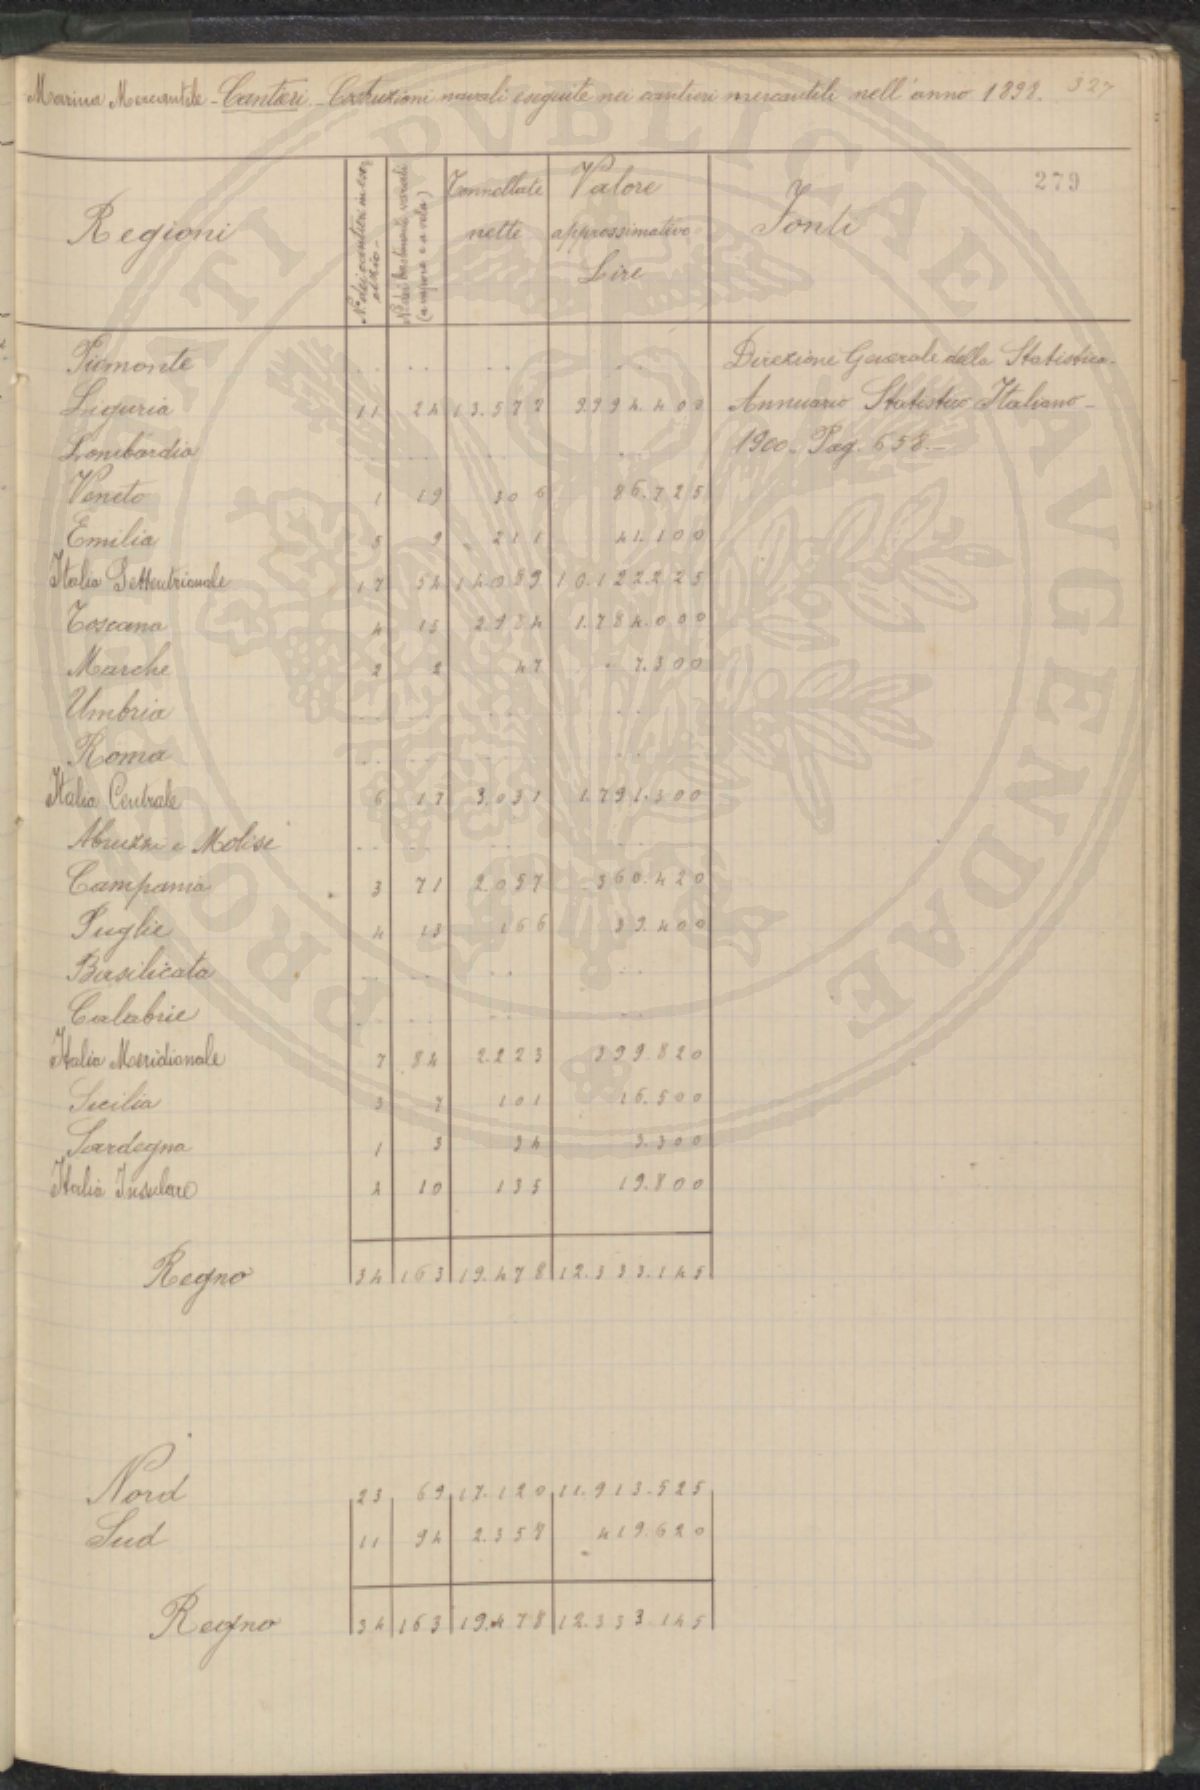 Marina Mercantile - Cantieri - Costruzioni navali eseguite nei cantieri mercantili nell'anno 1898. 327
279
Regioni | N. dei cantieri in esercizio | N. dei bastimenti varati (a vapore e a vela) | Tonnellate nette | Valore approssimativo Lire | Fonti
Piemonte .. .. .. .. Direzione Generale della Statistica.
Liguria 11 24 13.572 9.994.400 Annuario Statistico Italiano -
Lombardia .. .. .. .. 1900. Pag. 658. -
Veneto 1 19 306 86.725
Emilia 5 9 211 41.100
Italia Settentrionale 17 54 14.089 10.122.225
Toscana 4 15 2.984 1.784.000
Marche 2 2 47 7.300
Umbria .. .. .. ..
Roma .. .. .. ..
Italia Centrale 6 17 3.031 1.791.300
Abruzzi e Molise .. .. .. ..
Campania 3 71 2.057 360.420
Puglie 4 13 166 39.400
Basilicata .. .. .. ..
Calabrie .. .. .. ..
Italia Meridionale 7 84 2.223 399.820
Sicilia 3 7 101 16.500
Sardegna 1 3 34 3.300
Italia Insulare 4 10 135 19.800
Regno 34 163 19.478 12.333.145
Nord 23 69 17.120 11.913.525
Sud 11 94 2.358 419.620
Regno 34 163 19.478 12.333.145
PROCURATI PUBLICAE AUGENDAE